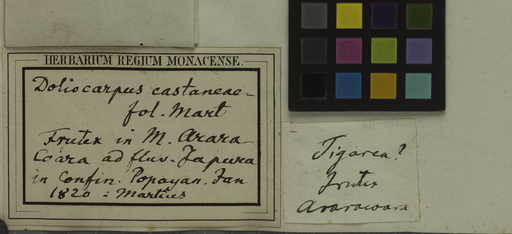 HERBARIUM REGIUM MONACENSE.
Doliocarpus castaneae-
fol. Mart
Frutex in M. Arara-
Coara ad fluv. Japura
in Confin. Popayan. Jan
1820 : Martius
Tigarea?
frutex
Araracoara